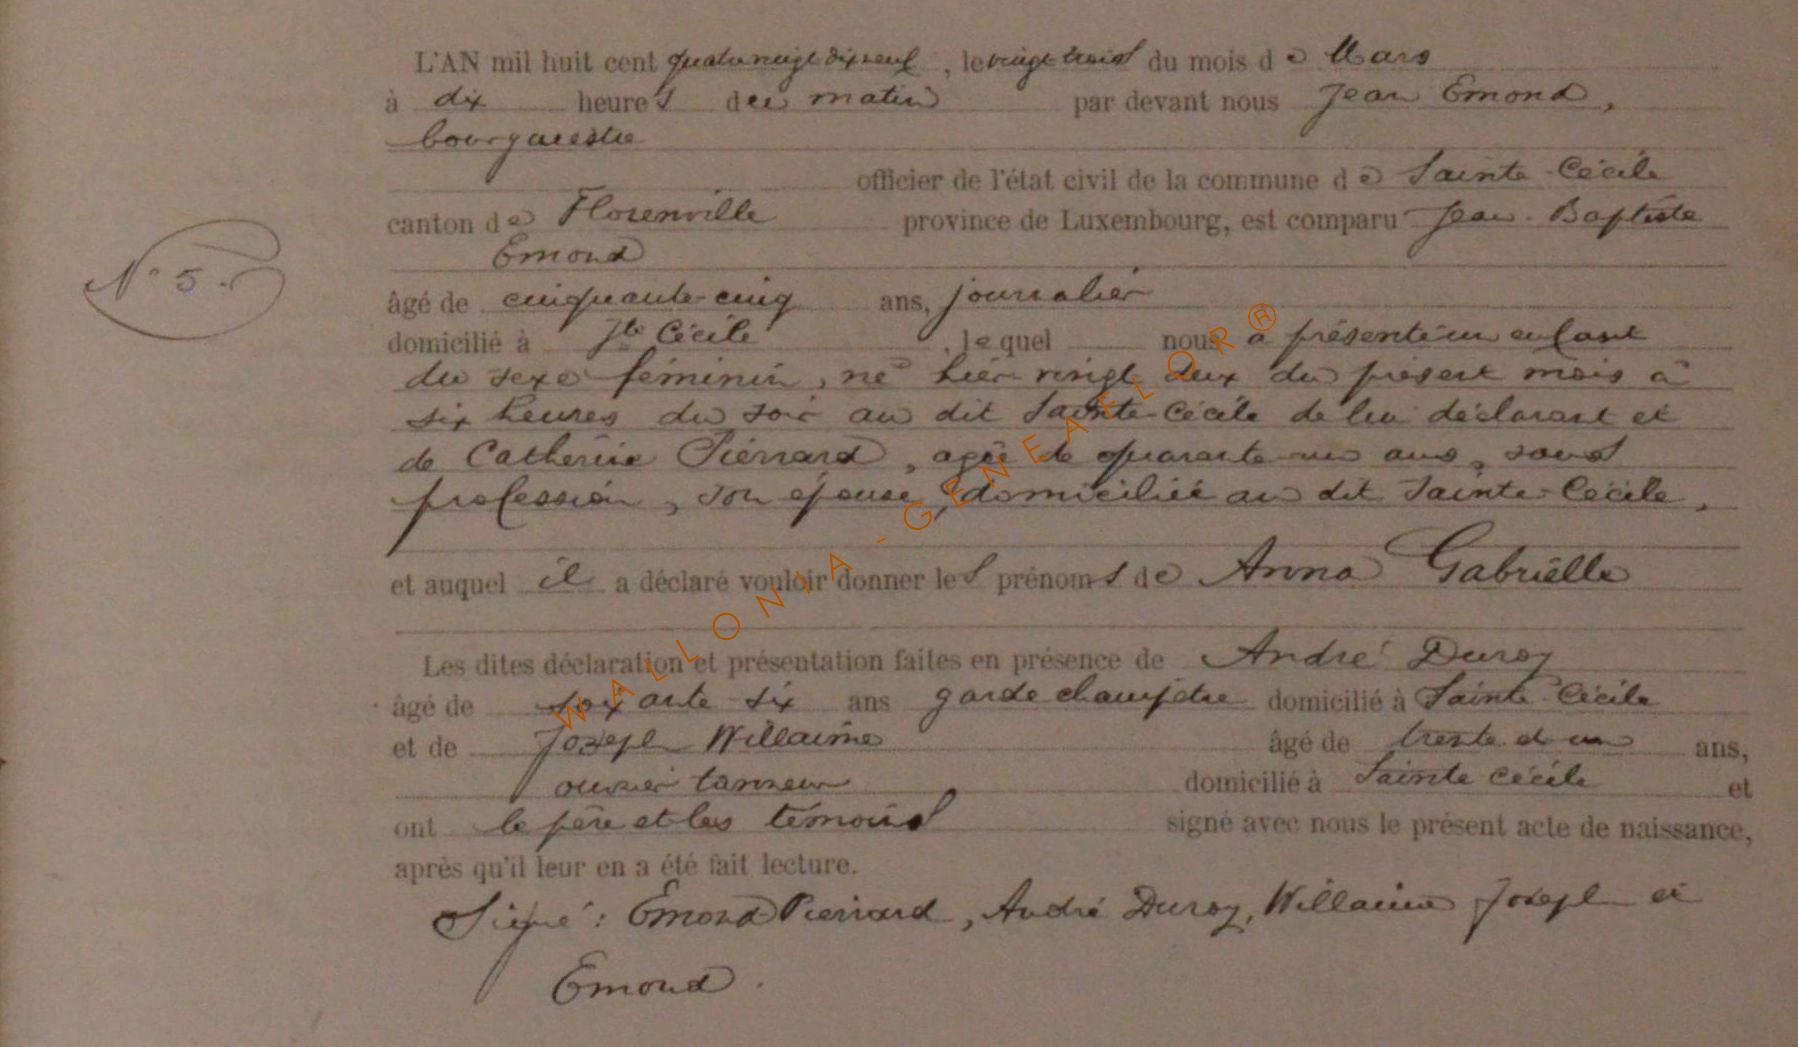 L'AN mil huit cent quatrevingt dixneuf, le vingt trois du mois de Mars
à dix heures du matin par devant nous Jean Emond,
bourgmestre
officier de l'état civil de la commune de Sainte-Cécile
canton de Florenville province de Luxembourg, est comparu Jean-Baptiste
Emond
N° 5.
âgé de cinquante-cinq ans, journalier
domicilié à Ste Cécile, lequel nous a présenté un enfant
du sexe féminin, né hier vingt deux du présent mois à
six heures du soir au dit Sainte-Cécile de lui déclarant et
de Catherine Piérrard, agée de quarante-un ans, sans
profession, son épouse, domiciliée au dit Sainte-Cécile,
et auquel il a déclaré vouloir donner les prénoms de Anna Gabrielle
Les dites déclaration et présentation faites en présence de André Duroy
âgé de soixante-six ans garde champêtre domicilié à Sainte-Cécile
et de Joseph Willaime âgé de trente et un ans,
ouvrier tanneur domicilié à Sainte Cécile et
ont le père et les témoins signé avec nous le présent acte de naissance,
après qu'il leur en a été fait lecture.
Signé : Emond-Pierrard, André Duroy, Willaime Joseph et
Emond.
WALLONIA-GENEAELOR®